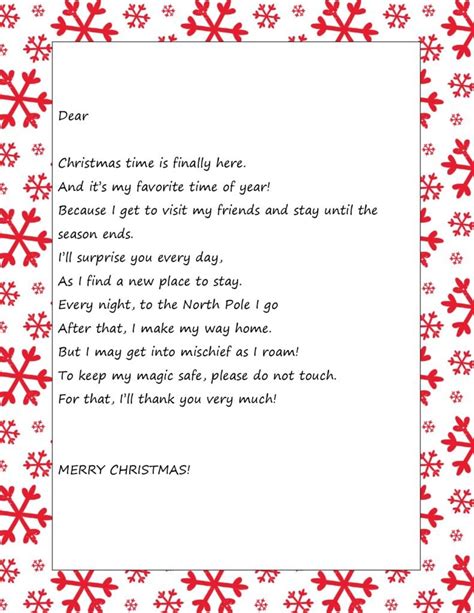 Dear
Christmas time is finally here.
And it's my favorite time of year!
Because I get to visit my friends and stay until the
season ends.
I'll surprise you every day,
As I find a new place to stay.
Every night, to the North Pole I go
After that, I make my way home.
But I may get into mischief as I roam!
To keep my magic safe, please do not touch.
For that, I'll thank you very much!
MERRY CHRISTMAS!